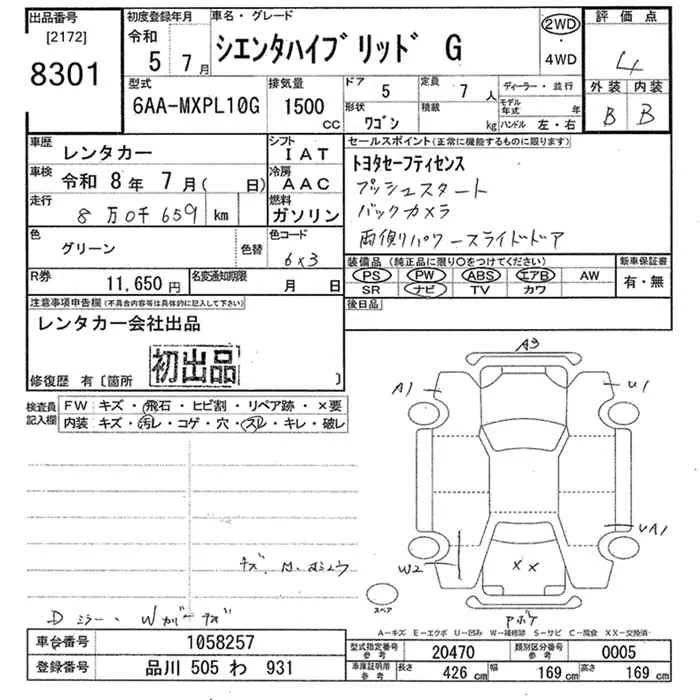 出品番号
[2172]
8301
初度登録年月
令和 5年 7月
車名・グレード
シエンタハイブリッド G
2WD
・
4WD
評価点
4
外装 内装
B B
型式
6AA-MXPL10G
排気量
1500 CC
ドア 5
定員 7人
形状 ワゴン
積載 kg
ディーラー・並行
モデル年式 年
ハンドル 左・右
車歴 レンタカー
シフト IAT
車検 令和 8年 7月( 日)
冷房 AAC
走行 8万0千659 km
燃料 ガソリン
色 グリーン 色替
色コード 6x3
R券 11,650円
名変通知期限 月 日
セールスポイント(正常に機能するものに限ります)
トヨタセーフティセンス
プッシュスタート
バックカメラ
両側パワースライドドア
装備品 (純正品に限り○をつけてください)
PS PW ABS エアB AW
SR ナビ TV カワ
新車保証書
有・無
後日品
注意事項申告欄(不具合内容等は具体的に記入して下さい)
レンタカー会社出品
初出品
修復歴 有〔箇所 〕
検査員記入欄
FW キズ・飛石・ヒビ割・リペア跡・×要
内装 キズ・汚レ・コゲ・穴・スレ・キレ・破レ
A3
A1
U1
UA1
W2
××
スペア
A-キズ E-エクボ U-凹み W-補修跡 S-サビ C-腐食 XX-交換済
車台番号 1058257
登録番号 品川 505 わ 931
型式指定番号 参考 20470
類別区分番号 参考 0005
車庫証明用 参考 長さ 426 cm 幅 169 cm 高さ 169 cm